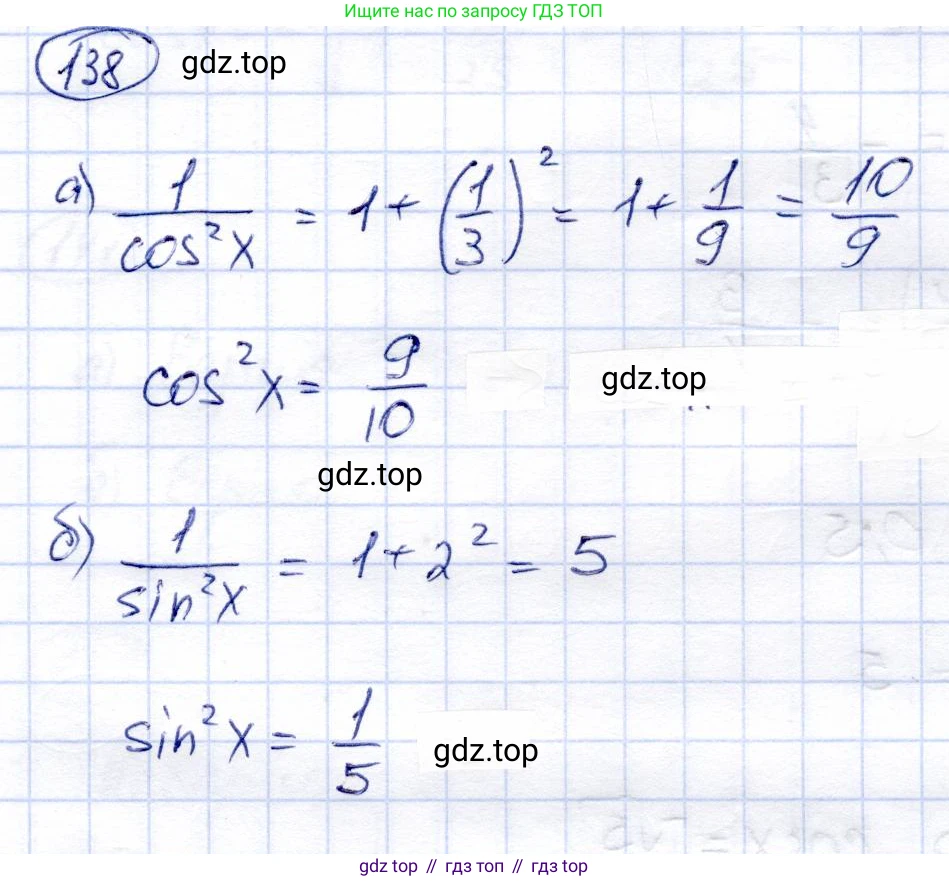 Ищите нас по запросу ГДЗ ТОП
138 gdz.top
а) 1/cos²x = 1 + (1/3)² = 1 + 1/9 = 10/9
cos²x = 9/10 gdz.top
gdz.top
б) 1/sin²x = 1 + 2² = 5
sin²x = 1/5 gdz.top
gdz top // гдз топ // гдз top